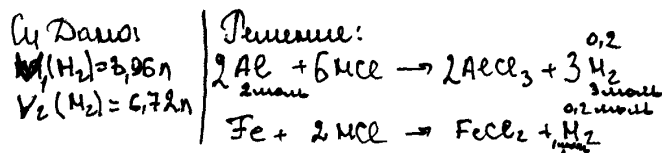 Cu Дано:
V₁(H₂)=8,96л
V₂(H₂)=6,72л
Решение:
0,2
2Al + 6HCl → 2AlCl₃ + 3H₂
2моль 3моль
0,2моль
Fe + 2HCl → FeCl₂ + H₂
1моль